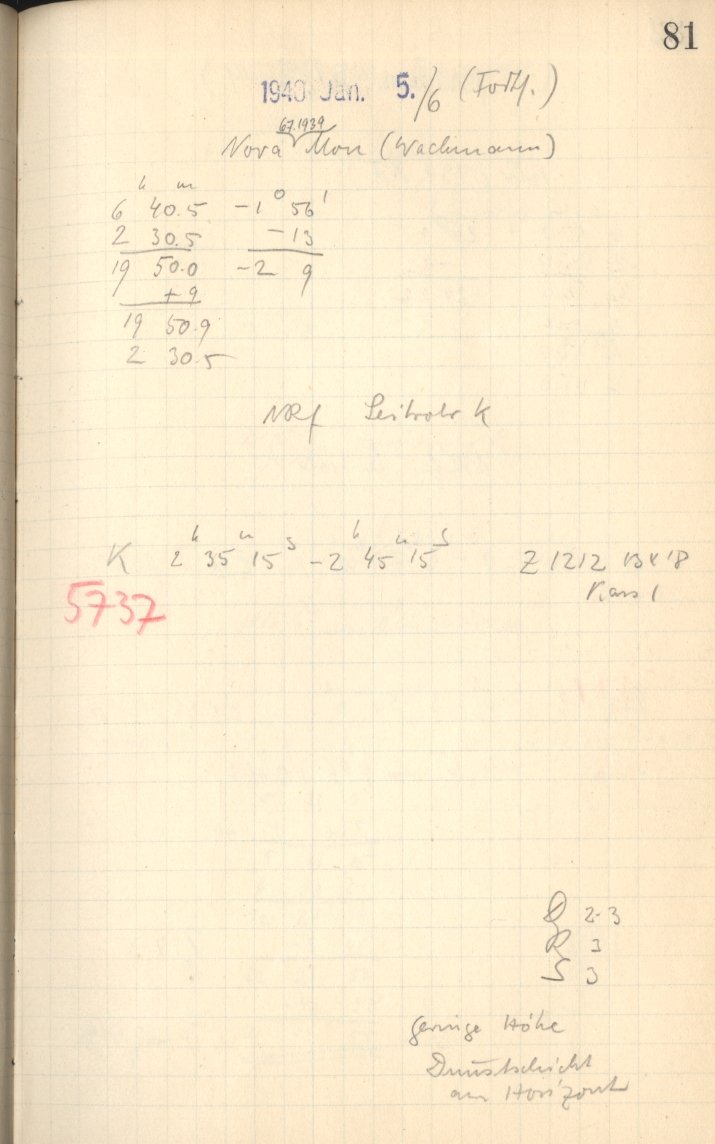 81
1940 Jan. 5./6 (Forts.)
67.1939
Nova Mon (Wachmann)
h m
6 40.5 -1° 56'
2 30.5 -13
19 50.0 -2 9
+9
19 50.9
2 30.5
Leitrohr K
K 2h 35m 15s - 2h 45m 15s Z 1212 13x18
5737
2-3
R 3
S 3
geringe Höhe
Dunstschicht
am Horizont